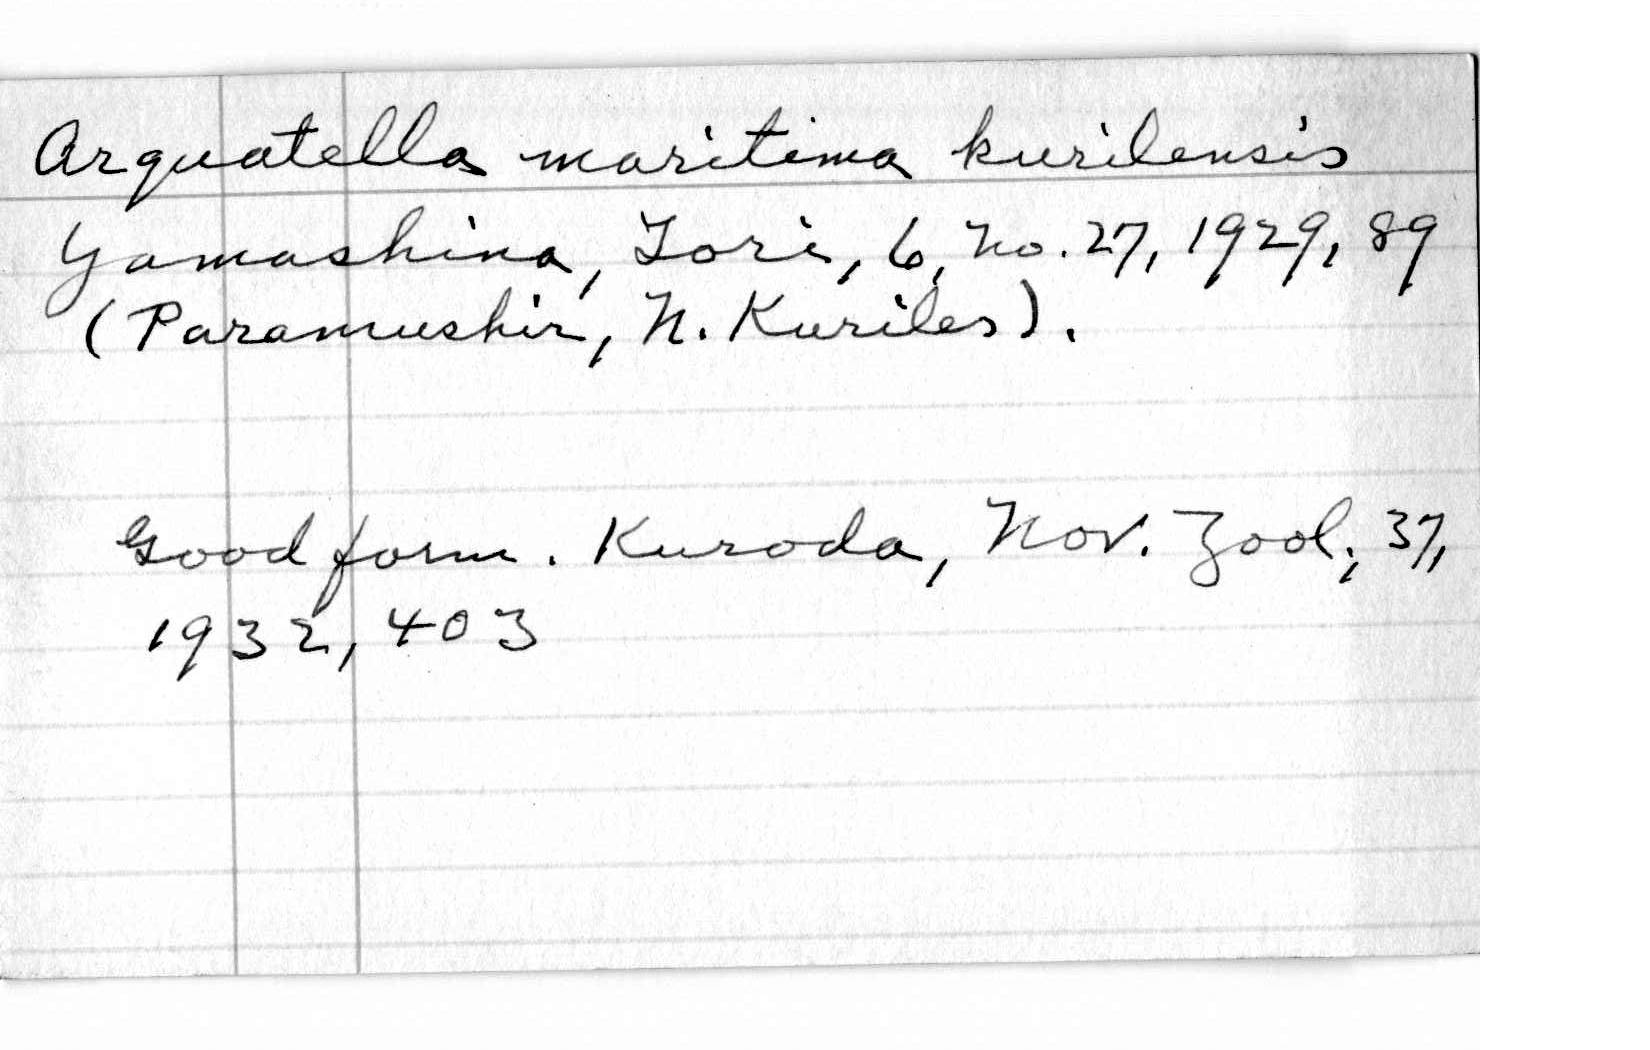 Arquatella maritima kurilensis
Yamashina, Tori, 6, No. 27, 1929, 89
(Paramushir, N. Kuriles).
Good form. Kuroda, Nov. Zool., 37,
1932, 403